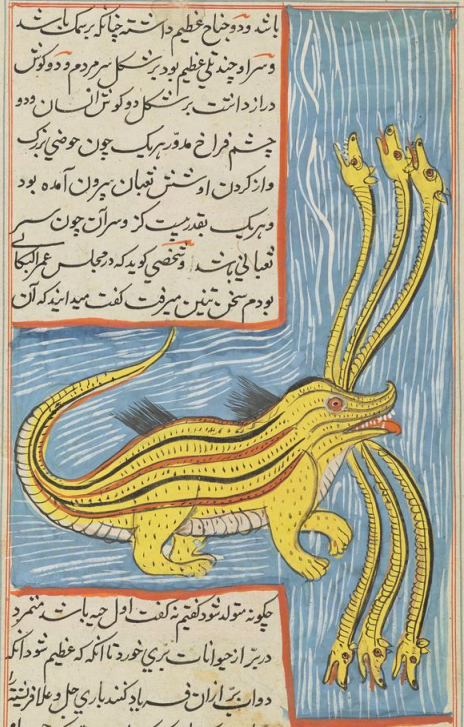 باشد و دو جناح عظیم داشته چنانکه بر سمک باشد
و سر او چند تلی عظیم بود بر شکل سر مردم و دو کوش
دراز داشت بر شکل دو کوش انسان و دو
چشم فراخ مدور هریک چون حوضی بزرک
و از کردن او شش ثعبان بیرون آمده بود
و هریک بقدر بیست کز و سر آن چون سر
ثعبانی باشد و شخصی کوید که در مجلس
بودم سخن تنین میرفت کفت میدانید که آن
چکونه متولد شود کفتیم نه کفت اول حیه باشد متمرد
در بر از حیوانات بری خورد تا آنکه که عظیم شود آنکه
دواب بر از آن فریاد کنند باری جل و علا فرشته